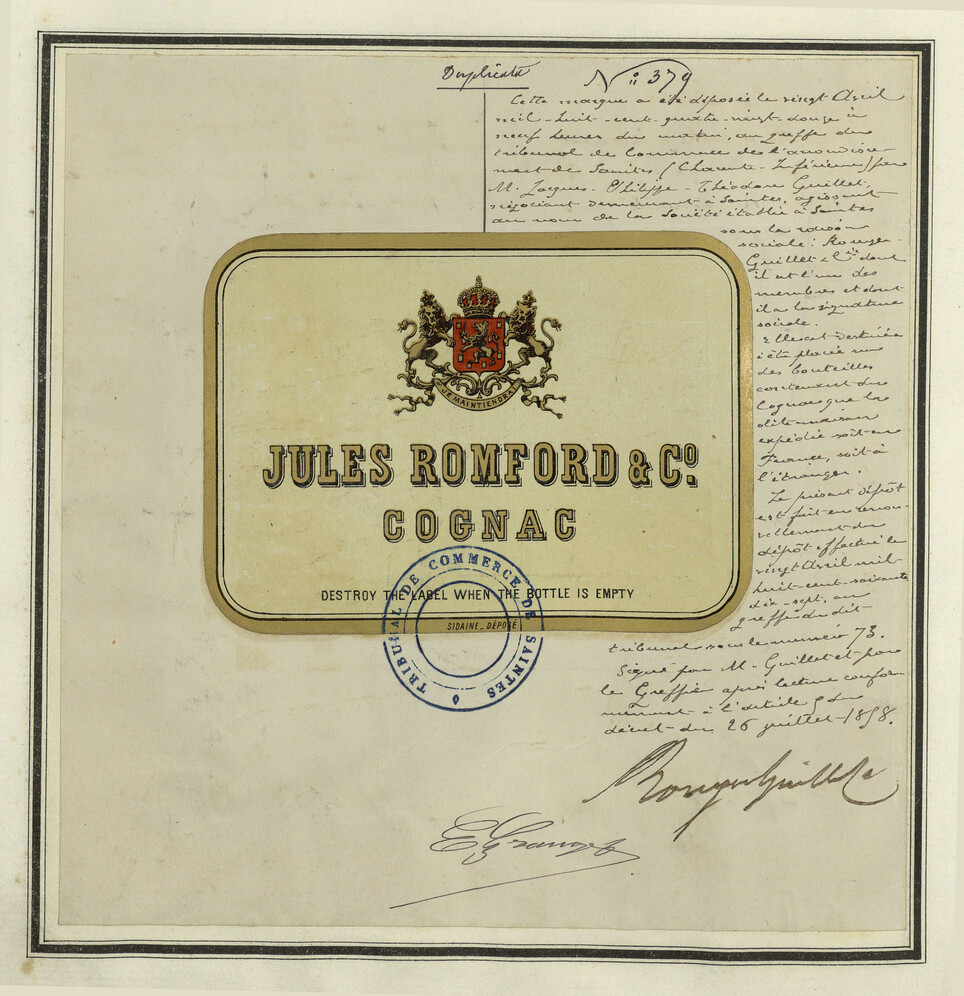 Duplicata
N° 379
Cette marque a été déposée le vingt Avril
mil-huit-cent-quatre-vingt-douze à
neuf heures du matin, au greffe du
tribunal de Commerce de l'arrondisse-
ment de Saintes (Charente-Inférieure) par
M. Jacques-Philippe-Théodore Guillet,
négociant demeurant à Saintes, agissant
au nom de la Société établie à Saintes
sous la raison
sociale: Rouyer
Guillet & Cie dont
il est l'un des
membres et dont
il a la signature
sociale.
Elle est destinée
à être placée sur
des bouteilles
contenant du
Cognac que la
dite maison
expédie soit en
France, soit à
l'étranger.
Le présent dépôt
est fait en renou-
vellement du
dépôt effectué le
vingt Avril mil
huit-cent-soixante
dix-sept, au
greffe du dit
tribunal sous le numéro 73.
Signé par M. Guillet et par
le Greffier après lecture confor-
mément à l'article 5 du
décret du 26 juillet 1858.
JE MAINTIENDRAI
JULES ROMFORD & Co.
COGNAC
DESTROY THE LABEL WHEN THE BOTTLE IS EMPTY
SIDAINE_DÉPOSÉ
TRIBUNAL DE COMMERCE DE SAINTES
Rouyer Guillet & Ce